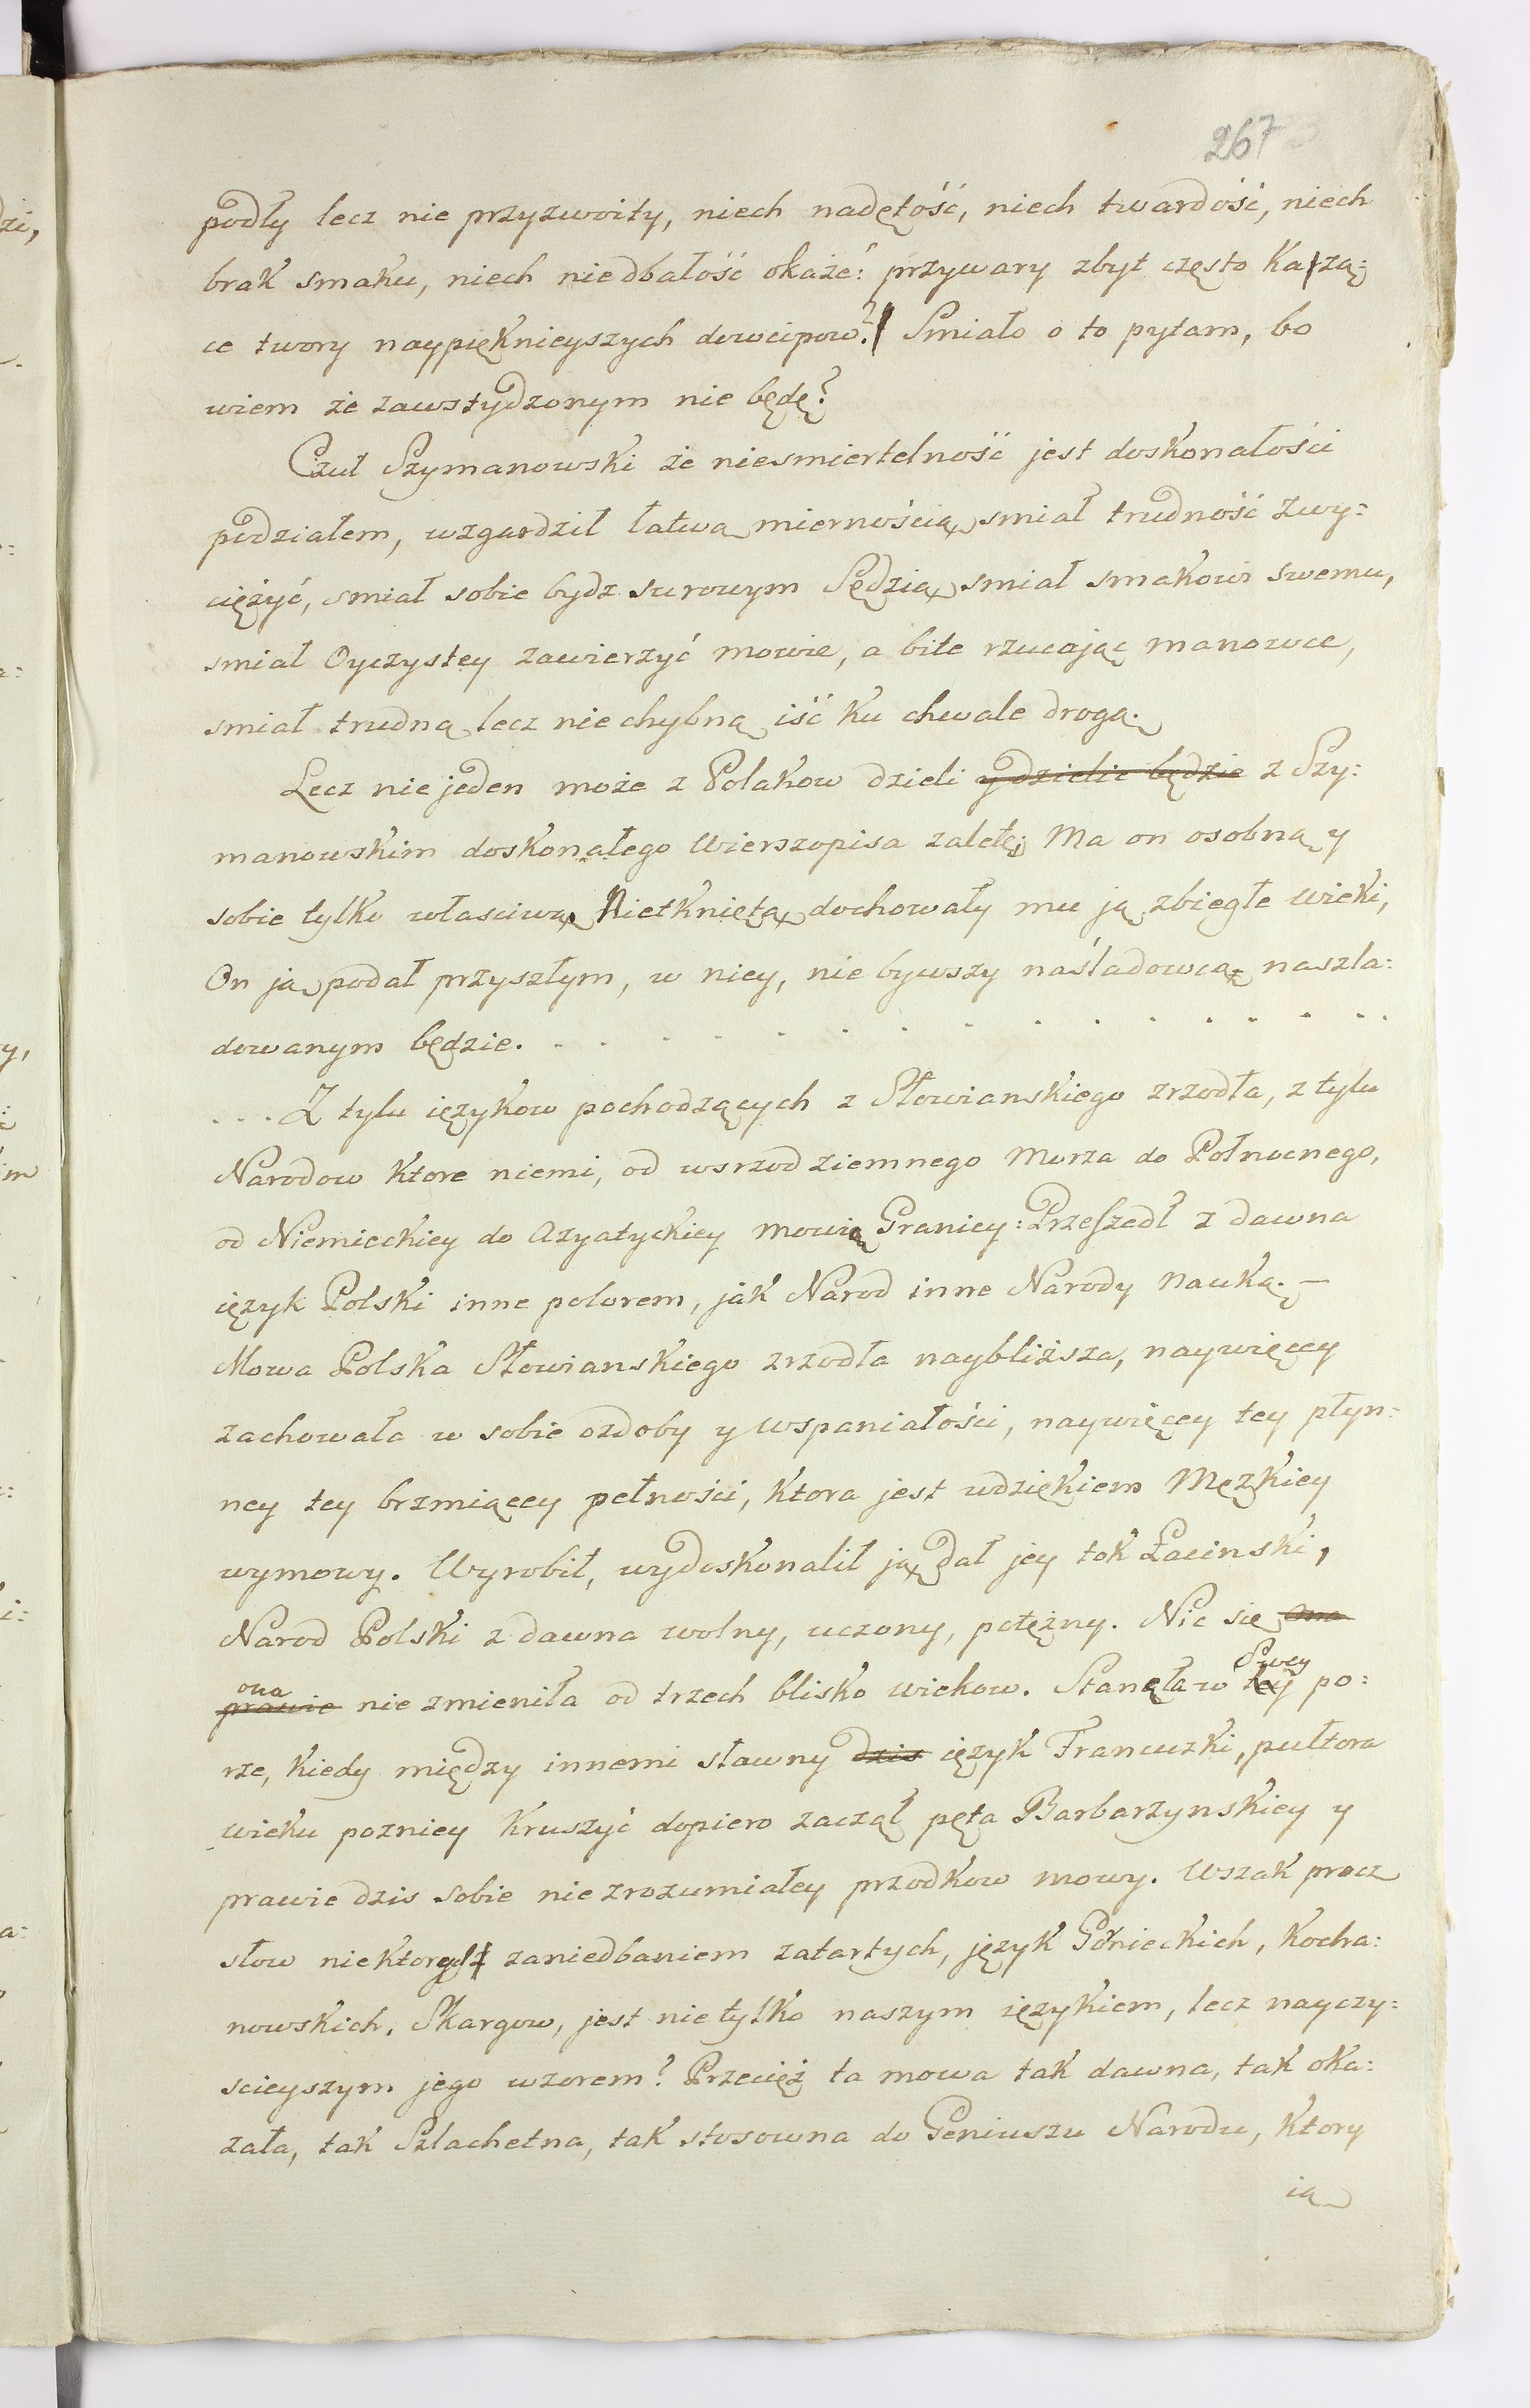 267
podły lecz nie przyzwoity, niech nadętość, niech twardość, niech
brak smaku, niech niedbałość okaże: przywary zbyt często Każą:
ce twory naypięknieyszych dowcipow? Smiało o to pytam, bo
wiem że zawstydzonym nie będę?
Czuł Szymanowski że niesmiertelność jest doskonałości
podziałem, wzgardził łatwą miernością, smiał trudność zwy:
ciężyć, smiał sobie bydz surowym Sędzią, smiał smakowi swemu,
smiał Oyczystey zawierzyć mowie, a bite rzucając manowce,
smiał trudną lecz niechybną iść ku chwale drogą.
Lecz nie jeden może z Polakow dzieli y dzielic będzie z Szy:
manowskim doskonałego Wierszopisa zaletę; Ma on osobną y
sobie tylko własciwą, Nietkniętą, dochowały mu ją zbiegłe wieki,
On ją podał przyszłym, w niey, nie bywszy naśladowcą, naszla:
dowanym będzie. . . . . . . . . . . . . . . .
. . . Z tylu ięzykow pochodzących z Słowianskiego zrzodła, z tylu
Narodow Ktore niemi, od wsrzod ziemnego Morza do Połnocnego,
od Niemieckiey do Azyatyckiey mowią Granicy: Przeszedł z dawna
ięzyk Polski inne polorem, jak Narod inne Narody Nauką. —
Mowa Polska Słowianskiego zrzodła naybliższa, naywięcey
zachowała w sobie ozdoby y wspaniałości, naywięcey tey płyn:
ney tey brzmiącey pełności, Ktora jest wdziękiem Męzkiey
wymowy. Wyrobił, wydoskonalił ją, dał jey tok Łacinski,
Narod Polski z dawna wolny, uczony, potężny. Nic się ona
ona
prawie nie zmieniła od trzech blisko wiekow. Stanęła w tey po:
Swey
rze, kiedy między innemi sławny dzis ięzyk Francuzki, pułtora
wieku pozniey Kruszyć dopiero zaczął pęta Barbarzynskiey y
prawie dzis sobie niezrozumiałey przodkow mowy. Wszak procz
słow niektorych zaniedbaniem zatartych, język Gornickich, Kocha:
nowskich, Skargow, jest nie tylko naszym ięzykiem, lecz nayczy:
scieyszym jego wzorem? Przecięż ta mowa tak dawna, tak oka:
zała, tak Szlachetna, tak stosowna do Geniuszu Narodu, Ktory
ią